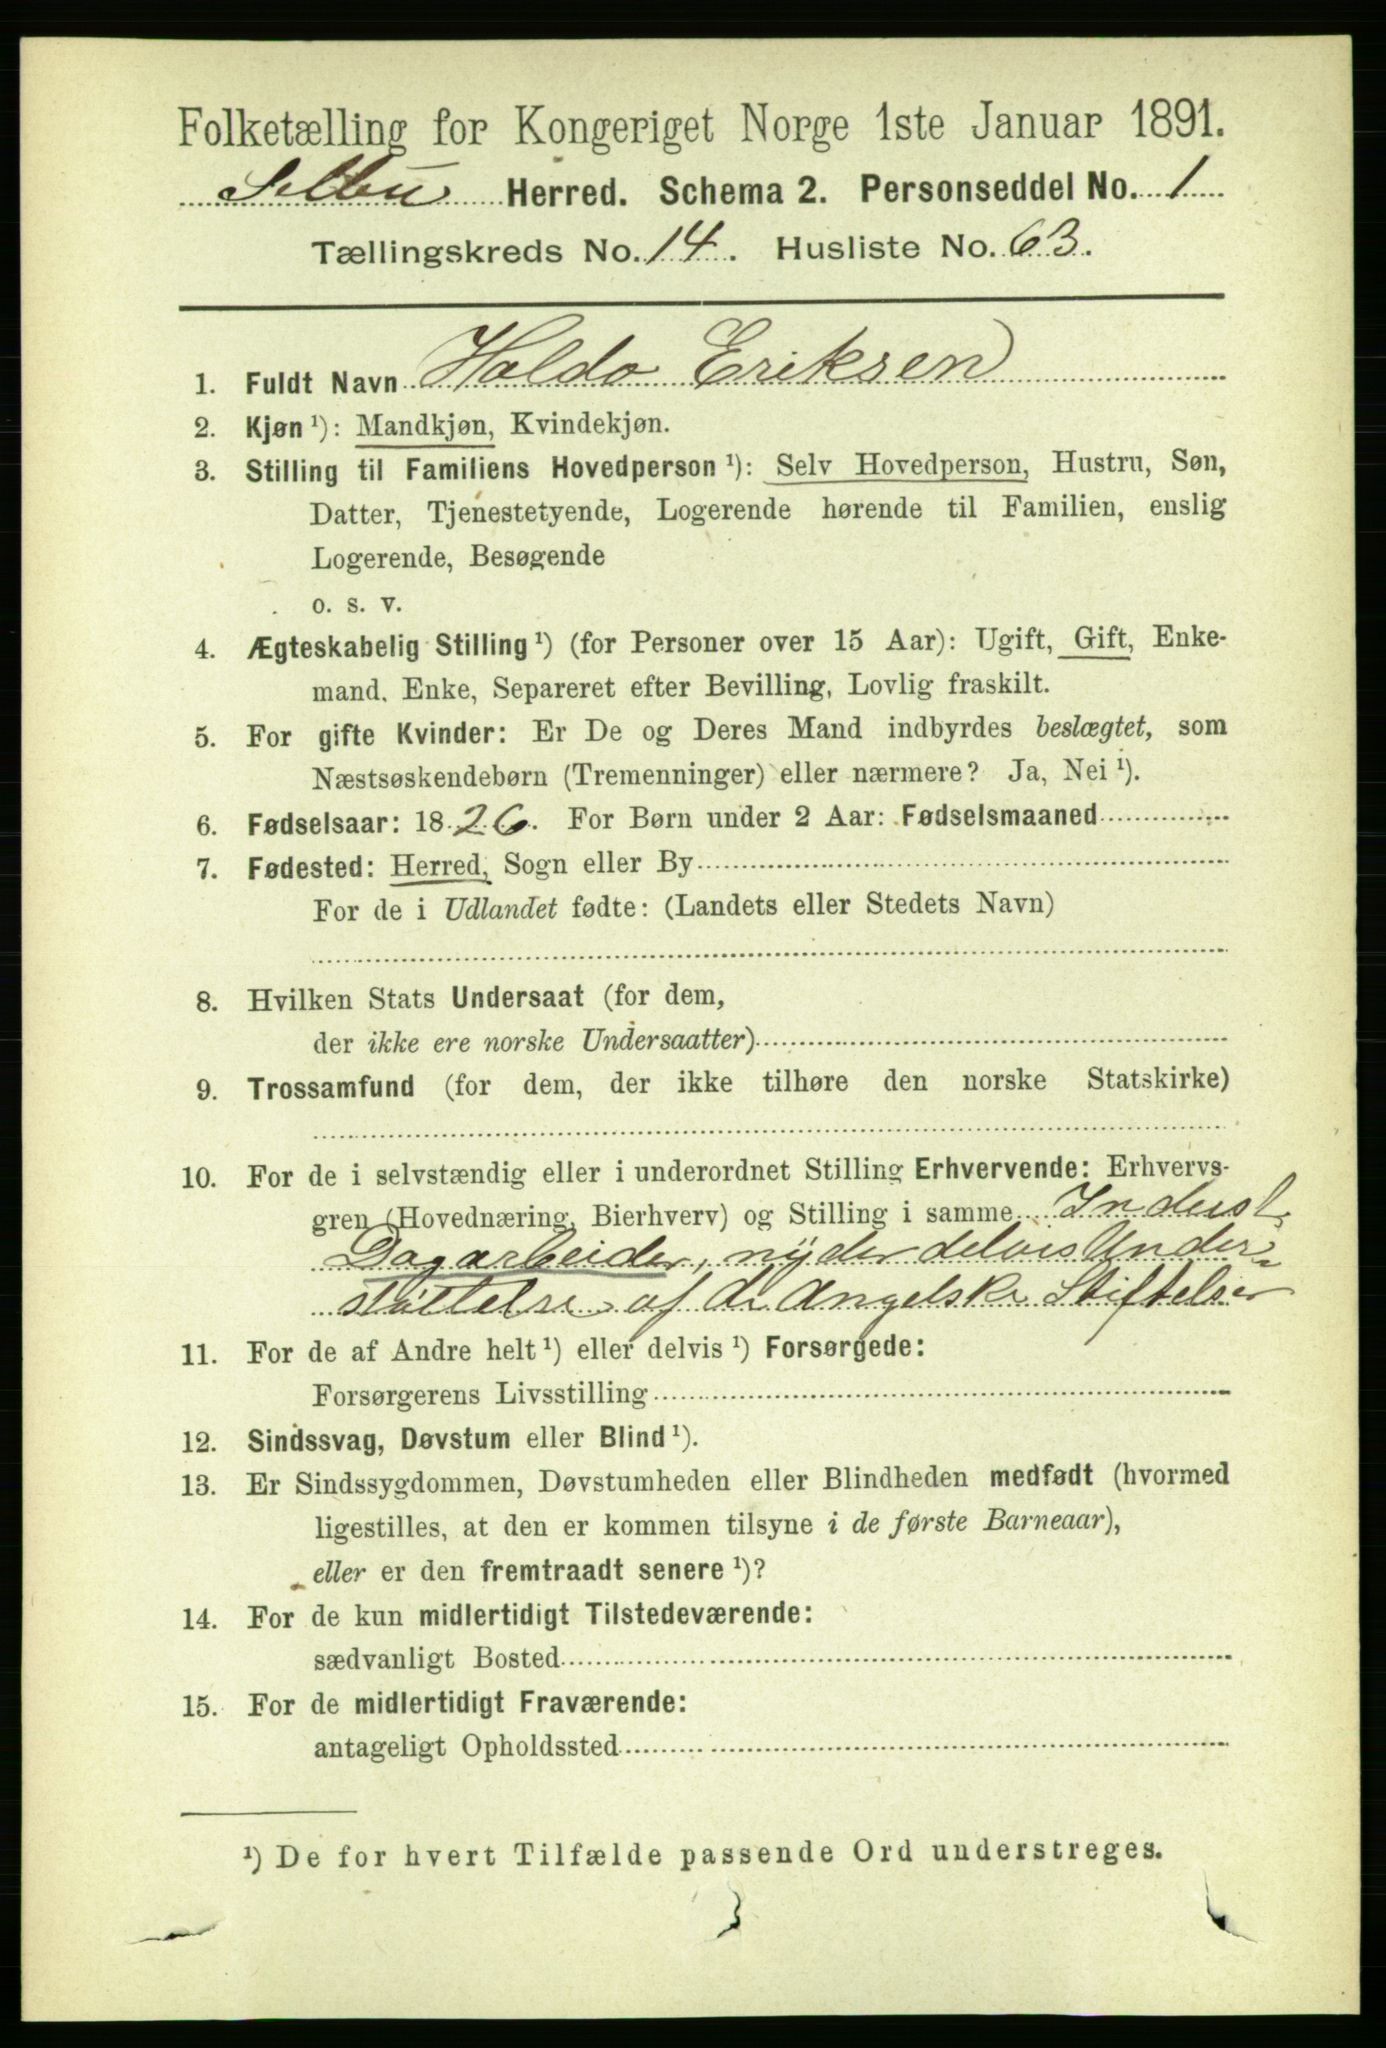 Folketælling for Kongeriget Norge 1ste Januar 1891.
Selbu Herred. Schema 2. Personseddel No. 1
Tællingskreds No. 14. Husliste No. 63.
1. Fuldt Navn Haldo Eriksen
2. Kjøn ¹): Mandkjøn, Kvindekjøn.
3. Stilling til Familiens Hovedperson ¹): Selv Hovedperson, Hustru, Søn,
Datter, Tjenestetyende, Logerende hørende til Familien, enslig
Logerende, Besøgende
o. s. v.
4. Ægteskabelig Stilling ¹) (for Personer over 15 Aar): Ugift, Gift, Enke-
mand, Enke, Separeret efter Bevilling, Lovlig fraskilt.
5. For gifte Kvinder: Er De og Deres Mand indbyrdes beslægtet, som
Næstsøskendebørn (Tremenninger) eller nærmere? Ja, Nei ¹).
6. Fødselsaar: 1826. For Børn under 2 Aar: Fødselsmaaned
7. Fødested: Herred, Sogn eller By
For de i Udlandet fødte: (Landets eller Stedets Navn)
8. Hvilken Stats Undersaat (for dem,
der ikke ere norske Undersaatter)
9. Trossamfund (for dem, der ikke tilhøre den norske Statskirke)
10. For de i selvstændig eller i underordnet Stilling Erhvervende: Erhvervs-
gren (Hovednæring, Bierhverv) og Stilling i samme Inderst,
Dagarbeider, nyder delvis Under-
støttelse af de Angelske Stiftelser
11. For de af Andre helt ¹) eller delvis ¹) Forsørgede:
Forsørgerens Livsstilling
12. Sindssvag, Døvstum eller Blind ¹).
13. Er Sindssygdommen, Døvstumheden eller Blindheden medfødt (hvormed
ligestilles, at den er kommen tilsyne i de første Barneaar),
eller er den fremtraadt senere ¹)?
14. For de kun midlertidigt Tilstedeværende:
sædvanligt Bosted
15. For de midlertidigt Fraværende:
antageligt Opholdssted
¹) De for hvert Tilfælde passende Ord understreges.